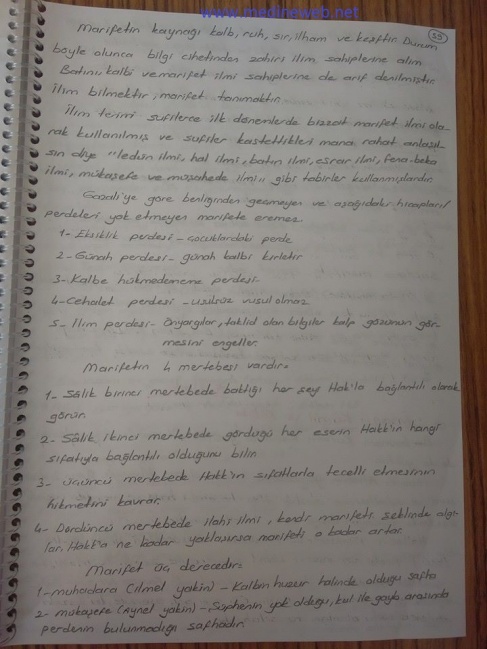 www.medineweb.net
59
Marifetin kaynağı kalb, ruh, sır, ilham ve keşiftir. Durum
böyle olunca bilgi cihetinden zahiri ilim sahiplerine alim
Batıni, kalbi ve marifet ilmi sahiplerine de arif denilmiştir.
İlim bilmektir, marifet tanımaktır.
İlim terimi sufilerce ilk dönemlerde bizzat marifet ilmi ola-
rak kullanılmış ve sufiler kastettikleri mana rahat anlaşıl-
sın diye "ledün ilmi, hal ilmi, batın ilmi, esrar ilmi, fena-beka
ilmi, mükaşefe ve müşahede ilmi,, gibi tabirler kullanmışlardır.
Gazali'ye göre benliğinden geçmeyen ve aşağıdaki hicapları/
perdeleri yok etmeyen marifete eremez.
1- Eksiklik perdesi - çocuklardaki perde
2- Günah perdesi - günah kalbi kirletir
3- Kalbe hükmedememe perdesi-
4- Cehalet perdesi - usulsüz vusul olmaz
5- İlim perdesi - Önyargılar, taklid olan bilgiler kalp gözünün gör-
mesini engeller.
Marifetin 4 mertebesi vardır:
1- Sâlik birinci mertebede baktığı her şeyi Hak'la bağlantılı olarak
görür.
2- Sâlik ikinci mertebede gördüğü her eserin Hakk'ın hangi
sıfatıyla bağlantılı olduğunu bilir.
3- Üçüncü mertebede Hakk'ın sıfatlarla tecelli etmesinin
hikmetini kavrar.
4- Dördüncü mertebede ilahi ilmi, kendi marifeti şeklinde algı-
lar. Hakk'a ne kadar yaklaşırsa marifeti o kadar artar.
Marifet üç derecedir:
1- muhadara (ilmel yakin) - Kalbin huzur halinde olduğu safha
2- mükaşefe (Aynel yakin) - Şüphenin yok olduğu, kul ile gayb arasında
perdenin bulunmadığı safhadır.